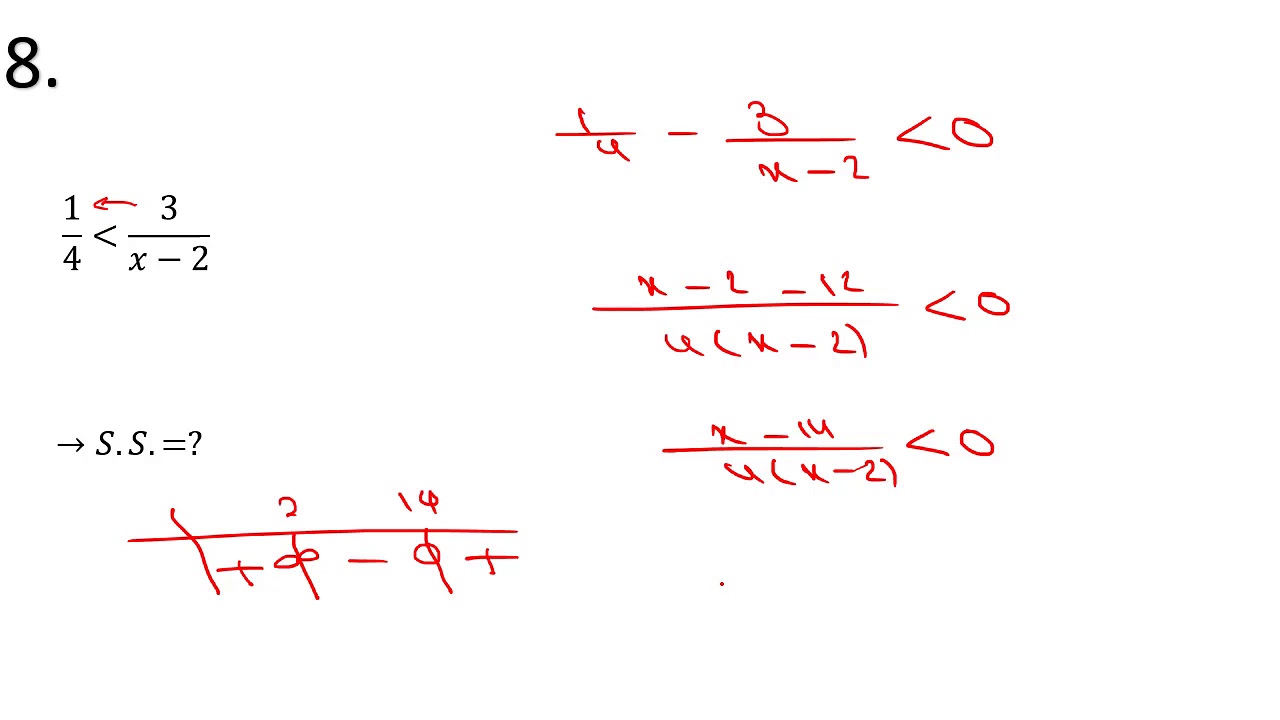 8.
1/4 < 3/(x − 2)
→ S.S.=?
1/4 − 3/(x − 2) < 0
(x − 2 − 12)/(4(x − 2)) < 0
(x − 14)/(4(x − 2)) < 0
2 14
+ ∞ − 0 +